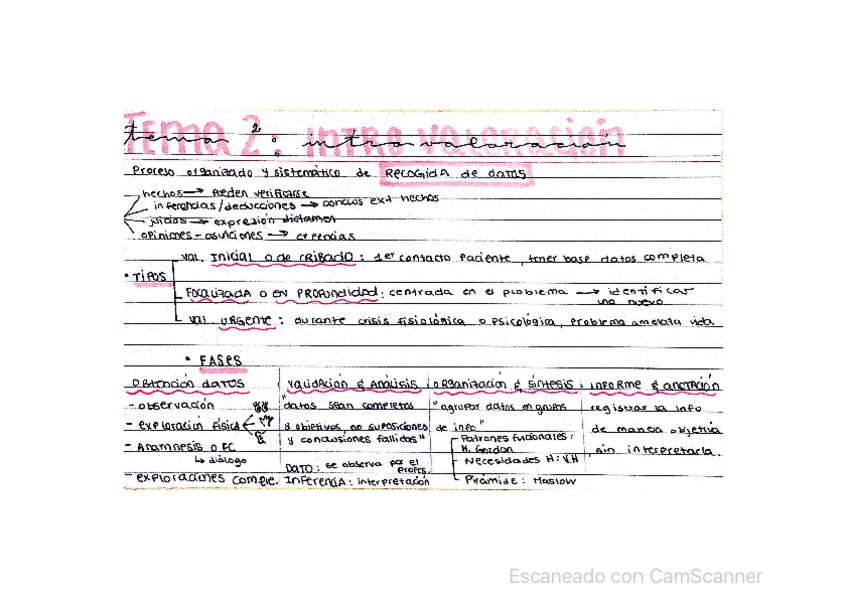 Tema 2: intro valoración
Proceso organizado y sistemático de RECOGIDA de datos
hechos → pueden verificarse
inferencias/deducciones → conclus ext hechos
juicios → expresión dictamen
opiniones - asunciones → creencias
• TIPOS
val. Inicial o de cribado: 1er contacto paciente, tener base datos completa
FOCALIZADA o EN PROFUNDIDAD: centrada en el problema → identificar
uno nuevo
val. URGENTE: durante crisis fisiológica o psicológica, problema amenaza vida
• FASES
OBTENCIÓN DATOS
- observación
- exploración física
- Anamnesis o EC
↳ diálogo
- exploraciones comple.
VALIDACIÓN & ANÁLISIS
"datos sean completos
y objetivos, no suposiciones
y conclusiones fallidas"
DATO: se observa por el
profes.
INFERENCIA: interpretación
ORGANIZACIÓN & SÍNTESIS
"agrupar datos en grupos
de info"
Patrones funcionales:
M. Gordon
Necesidades H: V.H
Pirámide: Maslow
INFORME & ANOTACIÓN
registrar la info
de manera objetiva
sin interpretarla.
Escaneado con CamScanner